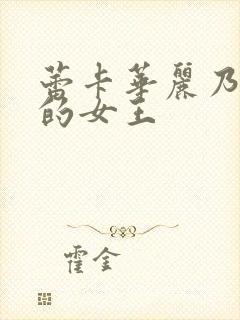 蕾卡華麗乃
的女王
霍金